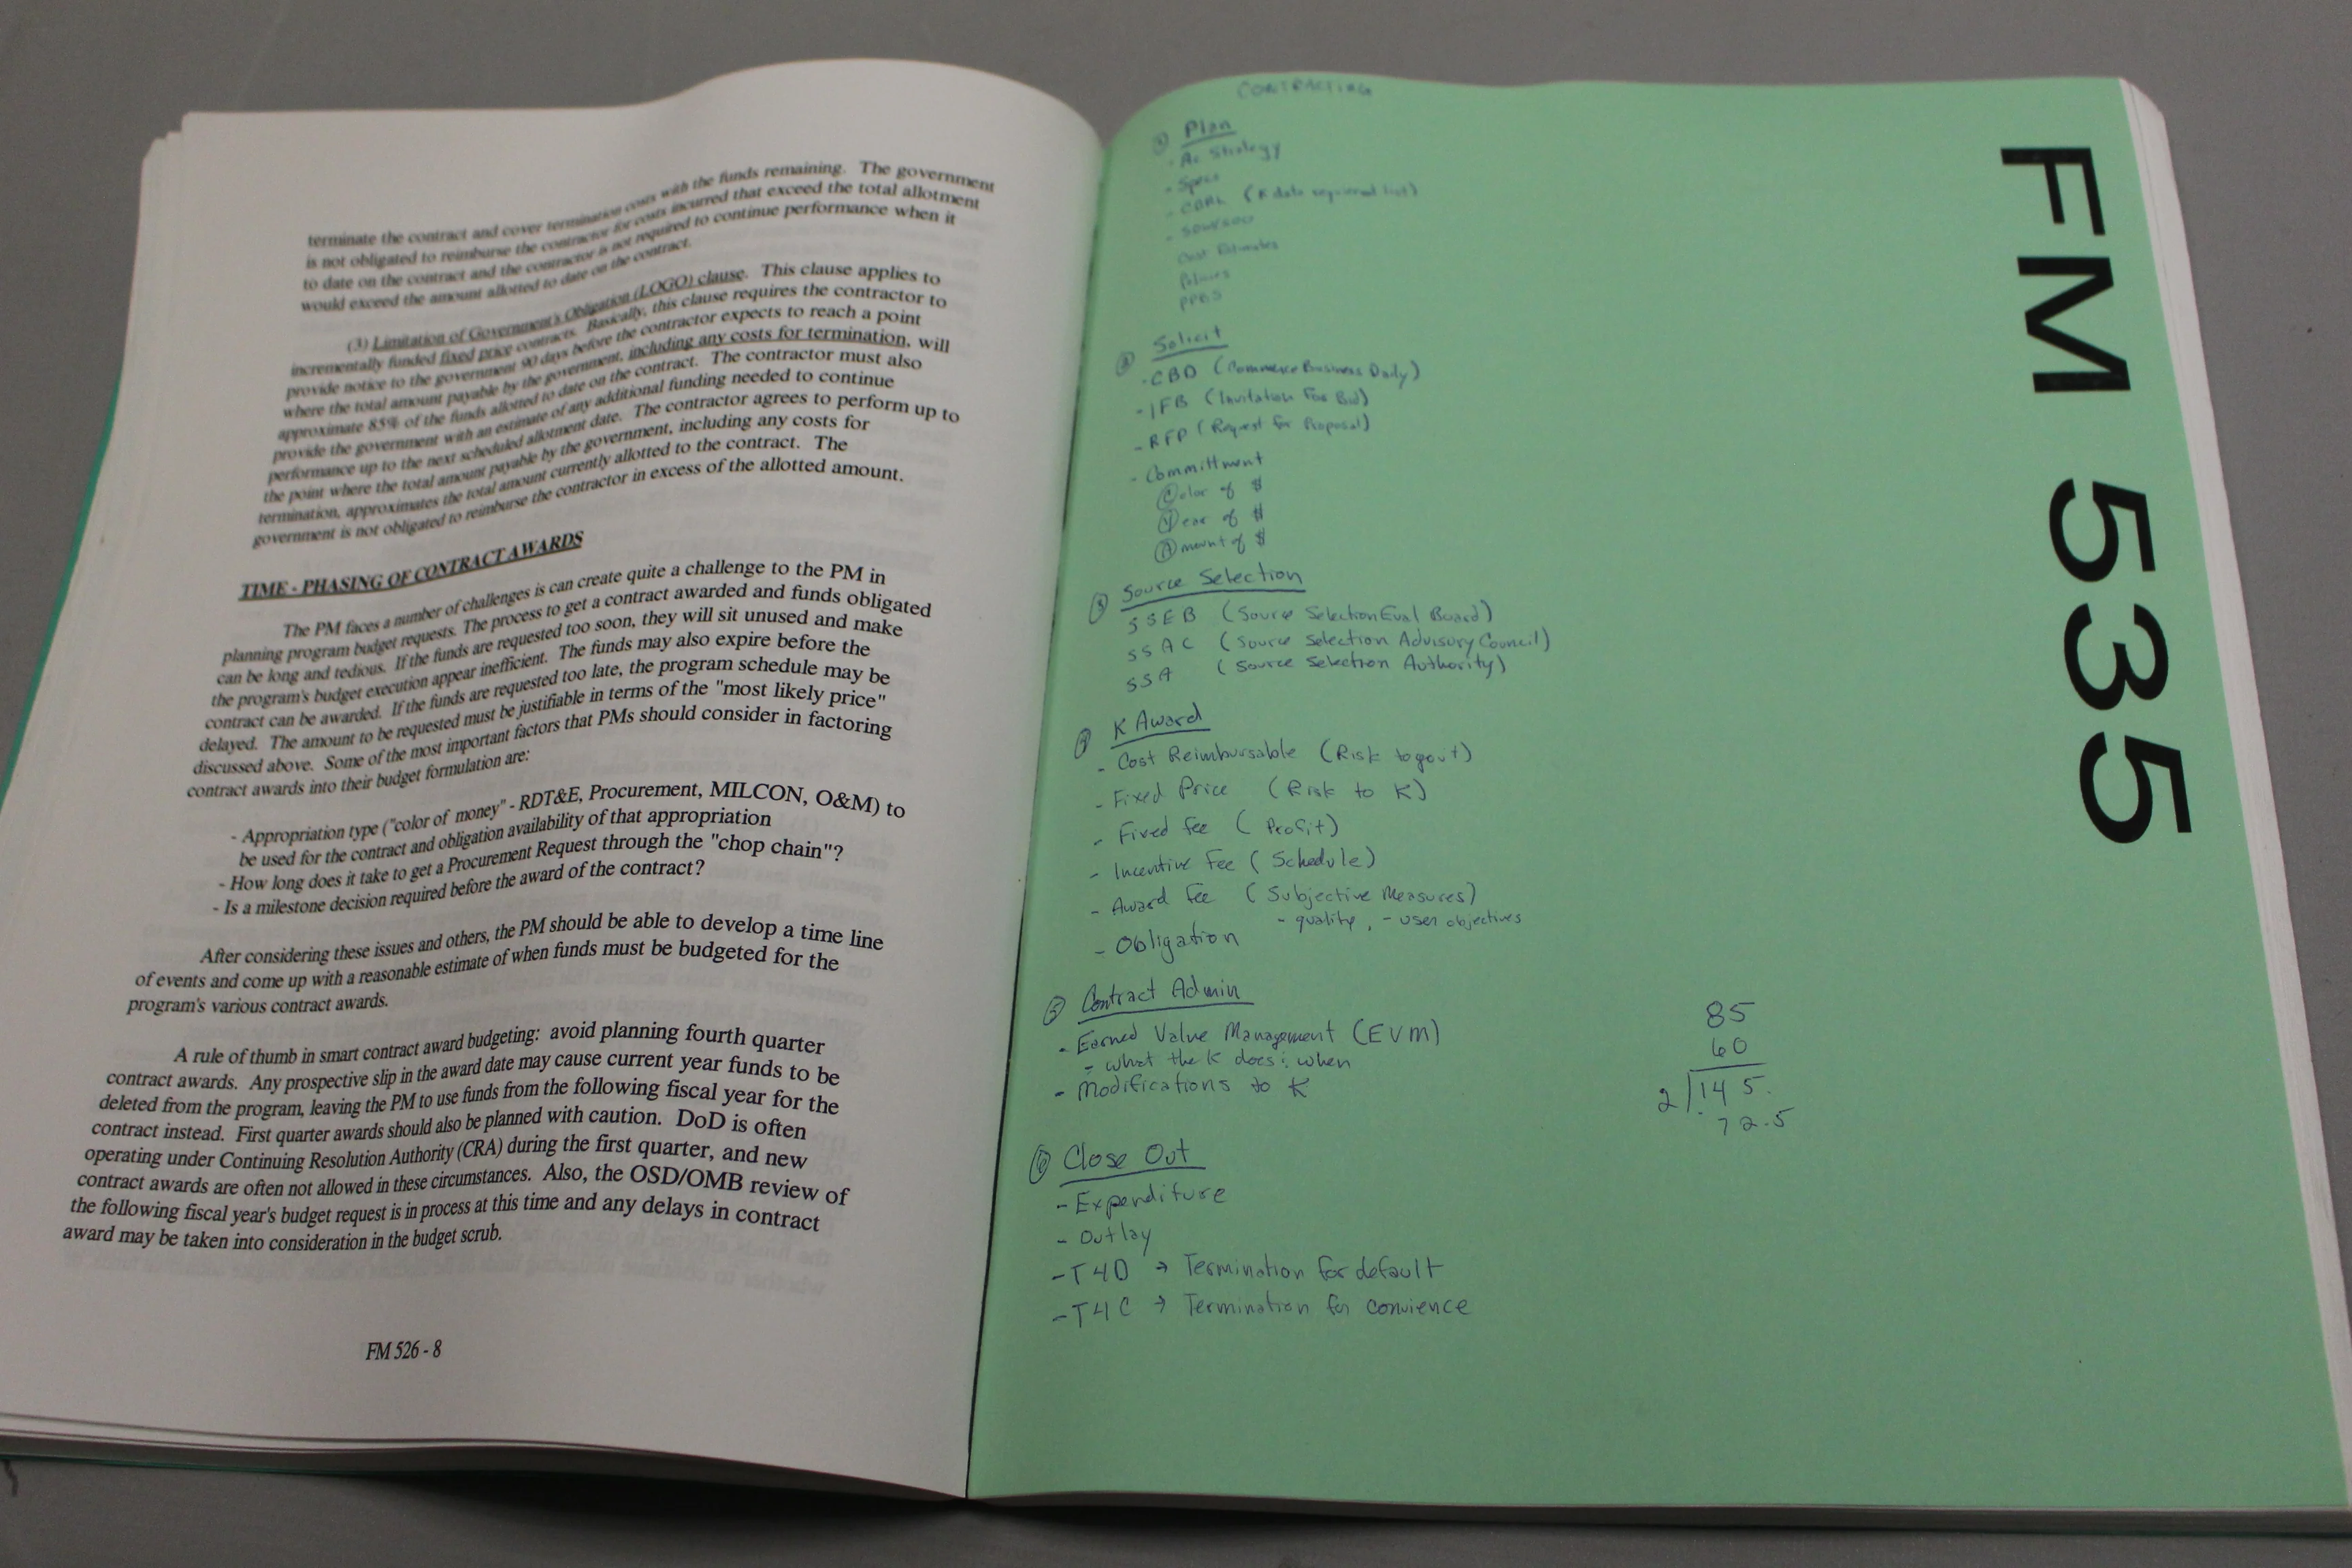 terminate the contract and cover termination costs with the funds remaining. The government
is not obligated to reimburse the contractor for costs incurred that exceed the total allotment
to date on the contract and the contractor is not required to continue performance when it
would exceed the amount allotted to date on the contract.
(3) Limitation of Government's Obligation (LOGO) clause. This clause applies to
incrementally funded fixed price contracts. Basically, this clause requires the contractor to
provide notice to the government 90 days before the contractor expects to reach a point
where the total amount payable by the government, including any costs for termination, will
approximate 85% of the funds allotted to date on the contract. The contractor must also
provide the government with an estimate of any additional funding needed to continue
performance up to the next scheduled allotment date. The contractor agrees to perform up to
the point where the total amount payable by the government, including any costs for
termination, approximates the total amount currently allotted to the contract. The
government is not obligated to reimburse the contractor in excess of the allotted amount.
TIME - PHASING OF CONTRACT AWARDS
The PM faces a number of challenges is can create quite a challenge to the PM in
planning program budget requests. The process to get a contract awarded and funds obligated
can be long and tedious. If the funds are requested too soon, they will sit unused and make
the program's budget execution appear inefficient. The funds may also expire before the
contract can be awarded. If the funds are requested too late, the program schedule may be
delayed. The amount to be requested must be justifiable in terms of the "most likely price"
discussed above. Some of the most important factors that PMs should consider in factoring
contract awards into their budget formulation are:
- Appropriation type ("color of money" - RDT&E, Procurement, MILCON, O&M) to
be used for the contract and obligation availability of that appropriation
- How long does it take to get a Procurement Request through the "chop chain"?
- Is a milestone decision required before the award of the contract?
After considering these issues and others, the PM should be able to develop a time line
of events and come up with a reasonable estimate of when funds must be budgeted for the
program's various contract awards.
A rule of thumb in smart contract award budgeting: avoid planning fourth quarter
contract awards. Any prospective slip in the award date may cause current year funds to be
deleted from the program, leaving the PM to use funds from the following fiscal year for the
contract instead. First quarter awards should also be planned with caution. DoD is often
operating under Continuing Resolution Authority (CRA) during the first quarter, and new
contract awards are often not allowed in these circumstances. Also, the OSD/OMB review of
the following fiscal year's budget request is in process at this time and any delays in contract
award may be taken into consideration in the budget scrub.
FM 526 - 8
CONTRACTING
① Plan
- Aq Strategy
- Specs
- CDRL (K data required list)
- SOW/SOO
Cost Estimates
Policies
PPBS
② Solicit
- CBD (Commerce Business Daily)
- IFB (Invitation For Bid)
- RFP (Request for Proposal)
- Committment
Color of $
Year of $
Amount of $
③ Source Selection
SSEB (Source Selection Eval Board)
SSAC (Source Selection Advisory Council)
SSA (Source Selection Authority)
④ K Award
- Cost Reimbursable (Risk to gov't)
- Fixed Price (Risk to K)
- Fixed fee (Profit)
- Incentive Fee (Schedule)
- Award Fee (Subjective Measures)
- quality, - user objectives
- Obligation
⑤ Contract Admin
- Earned Value Management (EVM)
- what the K does & when
- Modifications to K
⑥ Close Out
- Expenditure
- Outlay
- T4D → Termination for default
- T4C → Termination for convience
85
60
2 145.
72.5
FM 535